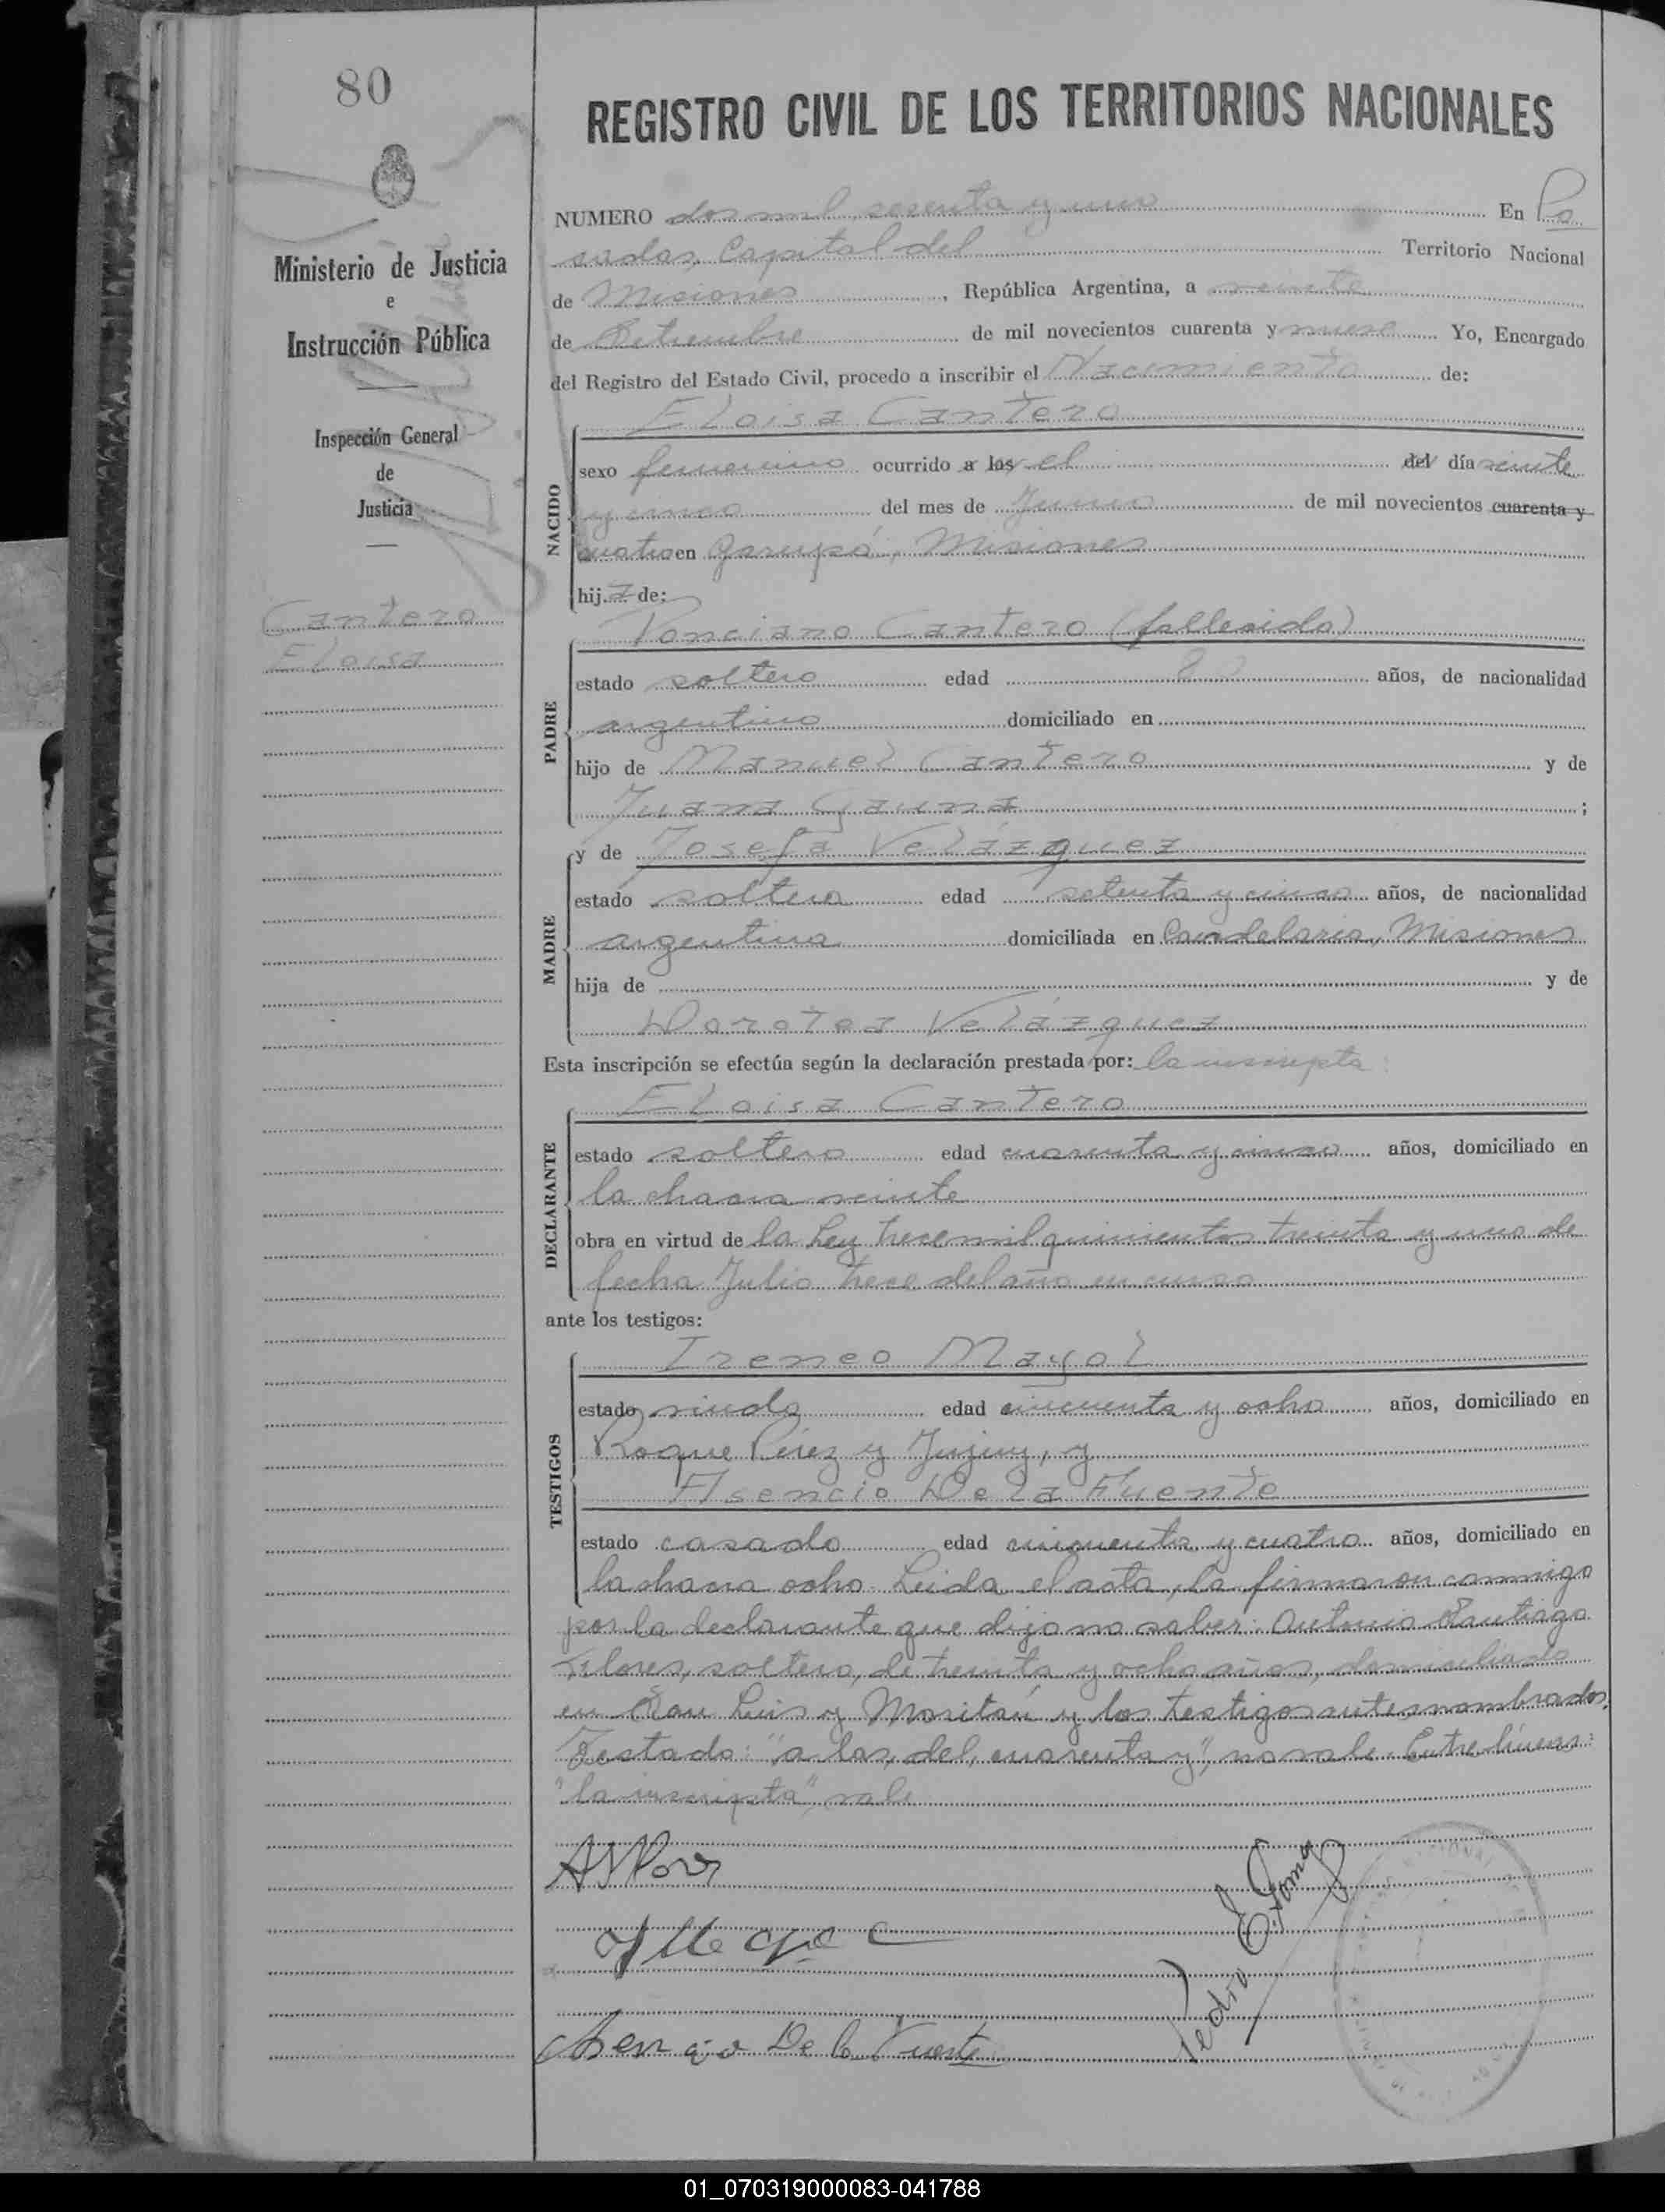 80
REGISTRO CIVIL DE LOS TERRITORIOS NACIONALES
Ministerio de Justicia
e
Instrucción Pública
Inspección General
de
Justicia
Cantero
Eloisa
NUMERO dos mil sesenta y uno En Po
sadas, Capital del Territorio Nacional
de Misiones, República Argentina, a veinte
de Setiembre de mil novecientos cuarenta y nueve Yo, Encargado
del Registro del Estado Civil, procedo a inscribir el Nacimiento de:
NACIDO
Eloisa Cantero
sexo femenino ocurrido a las el del día veinte
y cinco del mes de Junio de mil novecientos cuarenta y
cuatro en Garupá, Misiones
hija de:
PADRE
Ponciano Cantero (fallecido)
estado soltero edad años, de nacionalidad
argentino domiciliado en
hijo de Manuel Cantero y de
Juana Gauna ;
MADRE
y de Josefa Velázquez
estado soltera edad setenta y cinco años, de nacionalidad
argentina domiciliada en Candelaria, Misiones
hija de y de
Dorotea Velázquez
Esta inscripción se efectúa según la declaración prestada por: la inscripta:
DECLARANTE
Eloisa Cantero
estado soltero edad cuarenta y cinco años, domiciliado en
la chacra veinte
obra en virtud de la Ley trece mil quinientos treinta y uno de
fecha Julio trece del año en curso
ante los testigos:
TESTIGOS
Ireneo Mayol
estado viudo edad cincuenta y ocho años, domiciliado en
Roque Pérez y Jujuy, y
Asencio De la Fuente
estado casado edad cincuenta y cuatro años, domiciliado en
la chacra ocho. Leida el acta, la firmaron conmigo
por la declarante que dijo no saber: Antonio Santiago
Flores, soltero, de treinta y ocho años, domiciliado
en San Luis y Moritán y los testigos antes nombrados.
Testado: "a las, del, cuarenta y", no vale. Entre líneas:
"la inscripta", vale
Asencio De la Fuente
Pedro E. Gomez
01_070319000083-041788